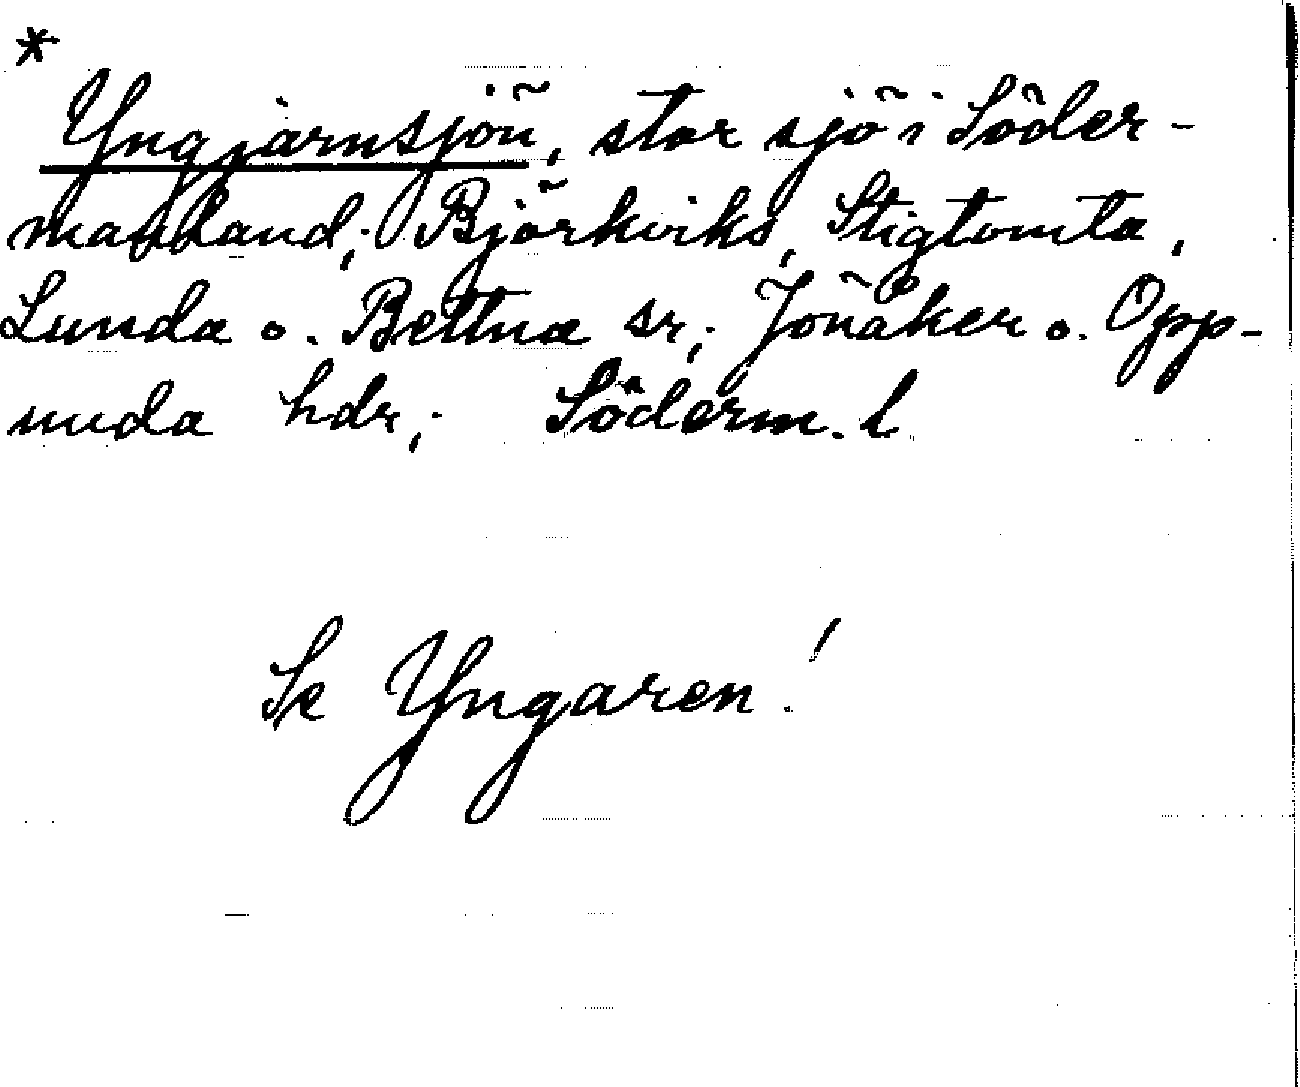 *
Yngjarnsjön, stor sjö i Söder-
manland; Björkviks, Stigtomta,
Lunda o. Bettna sr; Jönåker o. Opp-
unda hdr; Söderm. l
Se Yngaren!